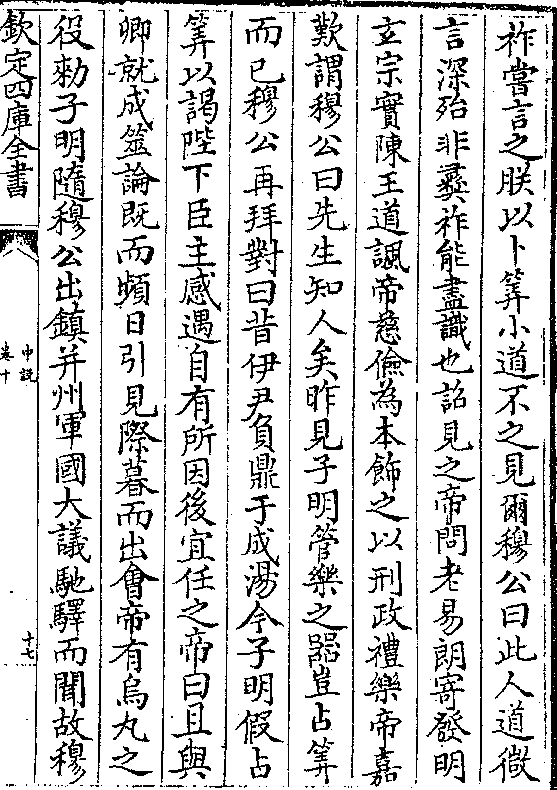 祚嘗言之朕以卜筭小道不之見爾穆公曰此人道微
言深殆非彛祚能盡識也詔見之帝問老易朗寄發明
玄宗實陳王道諷帝慈儉為本飾之以刑政禮樂帝嘉
歎謂穆公曰先生知人矣昨見子明管樂之器豈占筭
而已穆公再拜對曰昔伊尹負鼎于成湯今子明假占
筭以謁陛下臣主感遇自有所因後宜任之帝曰且與
卿就成筮論既而頻日引見際暮而出會帝有烏丸之
役勑子明隨穆公出鎮并州軍國大議馳驛而聞故穆
欽定四庫全書
中説
卷十
十七